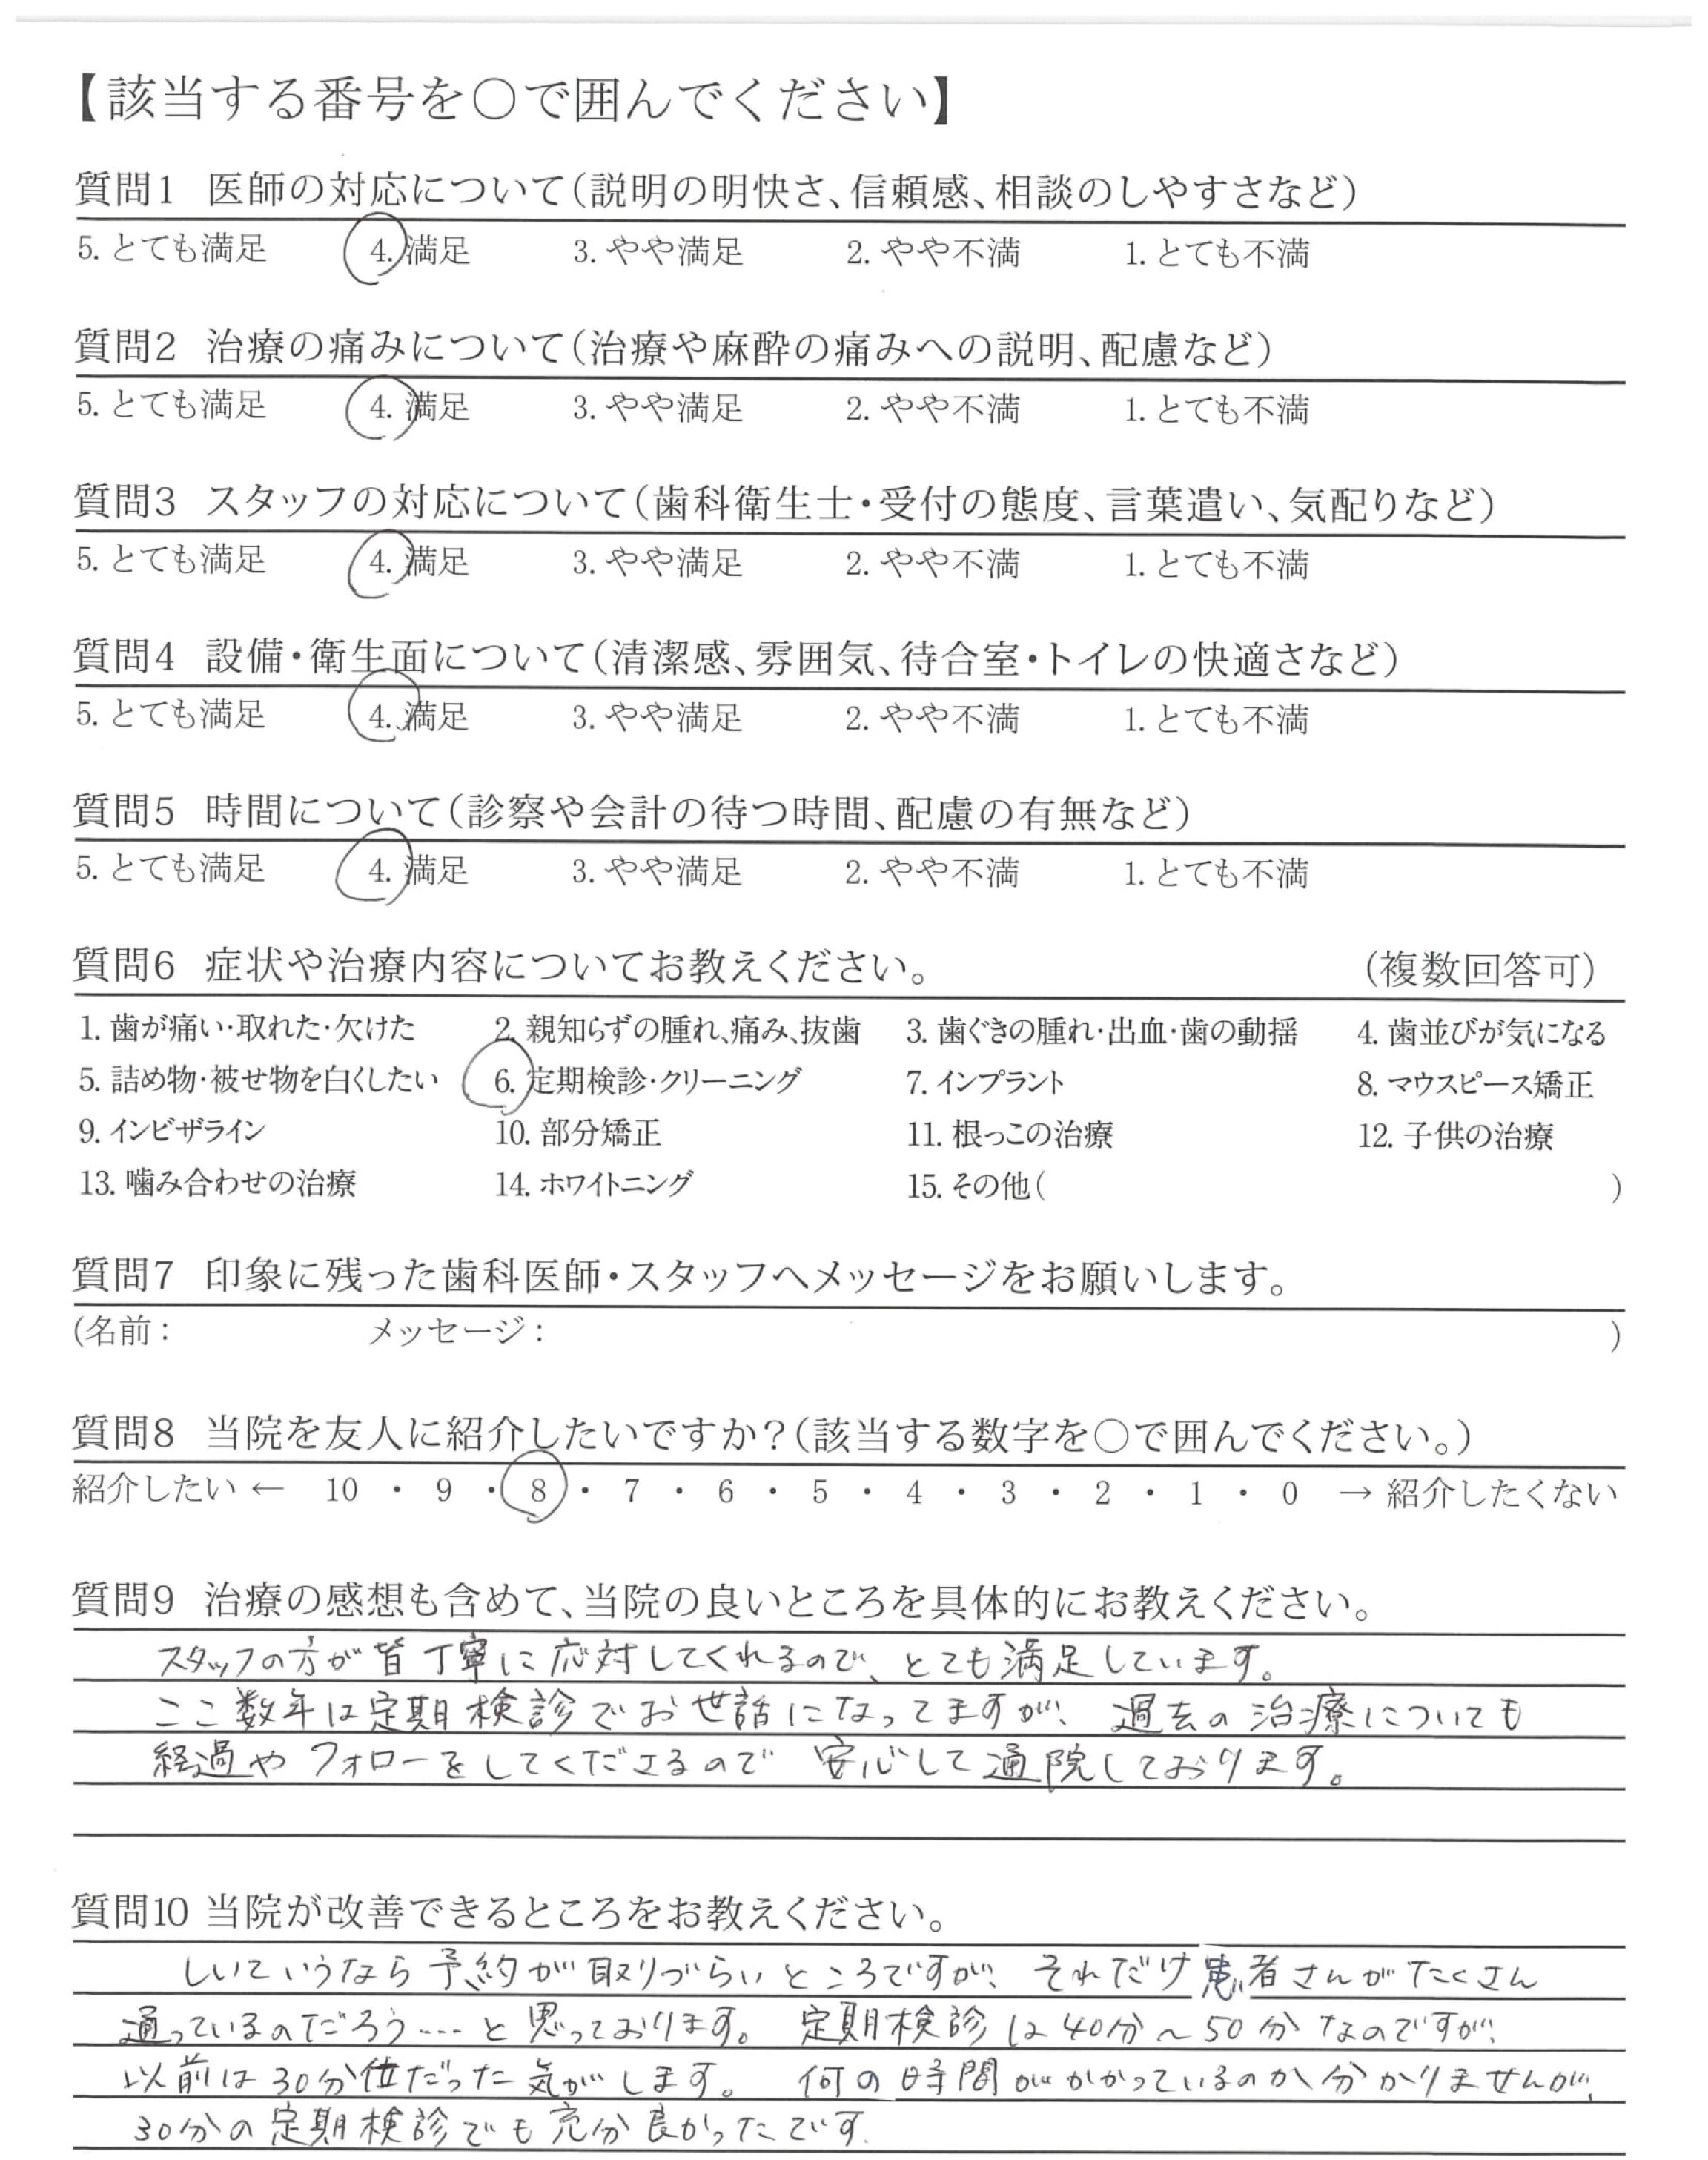 【該当する番号を○で囲んでください】
質問1 医師の対応について(説明の明快さ、信頼感、相談のしやすさなど)
5. とても満足 4. 満足 3. やや満足 2. やや不満 1. とても不満
質問2 治療の痛みについて(治療や麻酔の痛みへの説明、配慮など)
5. とても満足 4. 満足 3. やや満足 2. やや不満 1. とても不満
質問3 スタッフの対応について(歯科衛生士・受付の態度、言葉遣い、気配りなど)
5. とても満足 4. 満足 3. やや満足 2. やや不満 1. とても不満
質問4 設備・衛生面について(清潔感、雰囲気、待合室・トイレの快適さなど)
5. とても満足 4. 満足 3. やや満足 2. やや不満 1. とても不満
質問5 時間について(診察や会計の待つ時間、配慮の有無など)
5. とても満足 4. 満足 3. やや満足 2. やや不満 1. とても不満
質問6 症状や治療内容についてお教えください。 (複数回答可)
1. 歯が痛い・取れた・欠けた 2. 親知らずの腫れ、痛み、抜歯 3. 歯ぐきの腫れ・出血・歯の動揺 4. 歯並びが気になる
5. 詰め物・被せ物を白くしたい 6. 定期検診・クリーニング 7. インプラント 8. マウスピース矯正
9. インビザライン 10. 部分矯正 11. 根っこの治療 12. 子供の治療
13. 噛み合わせの治療 14. ホワイトニング 15. その他( )
質問7 印象に残った歯科医師・スタッフへメッセージをお願いします。
(名前: メッセージ: )
質問8 当院を友人に紹介したいですか?(該当する数字を○で囲んでください。)
紹介したい ← 10 ・ 9 ・ 8 ・ 7 ・ 6 ・ 5 ・ 4 ・ 3 ・ 2 ・ 1 ・ 0 → 紹介したくない
質問9 治療の感想も含めて、当院の良いところを具体的にお教えください。
スタッフの方が皆丁寧に応対してくれるので、とても満足しています。
ここ数年は定期検診でお世話になってますが、過去の治療についても
経過やフォローをしてくださるので安心して通院しております。
質問10 当院が改善できるところをお教えください。
しいていうなら予約が取りづらいところですが、それだけ患者さんがたくさん
通っているのだろう…と思っております。定期検診は40分〜50分なのですが、
以前は30分位だった気がします。何の時間がかかっているのか分かりませんが、
30分の定期検診でも充分良かったです.